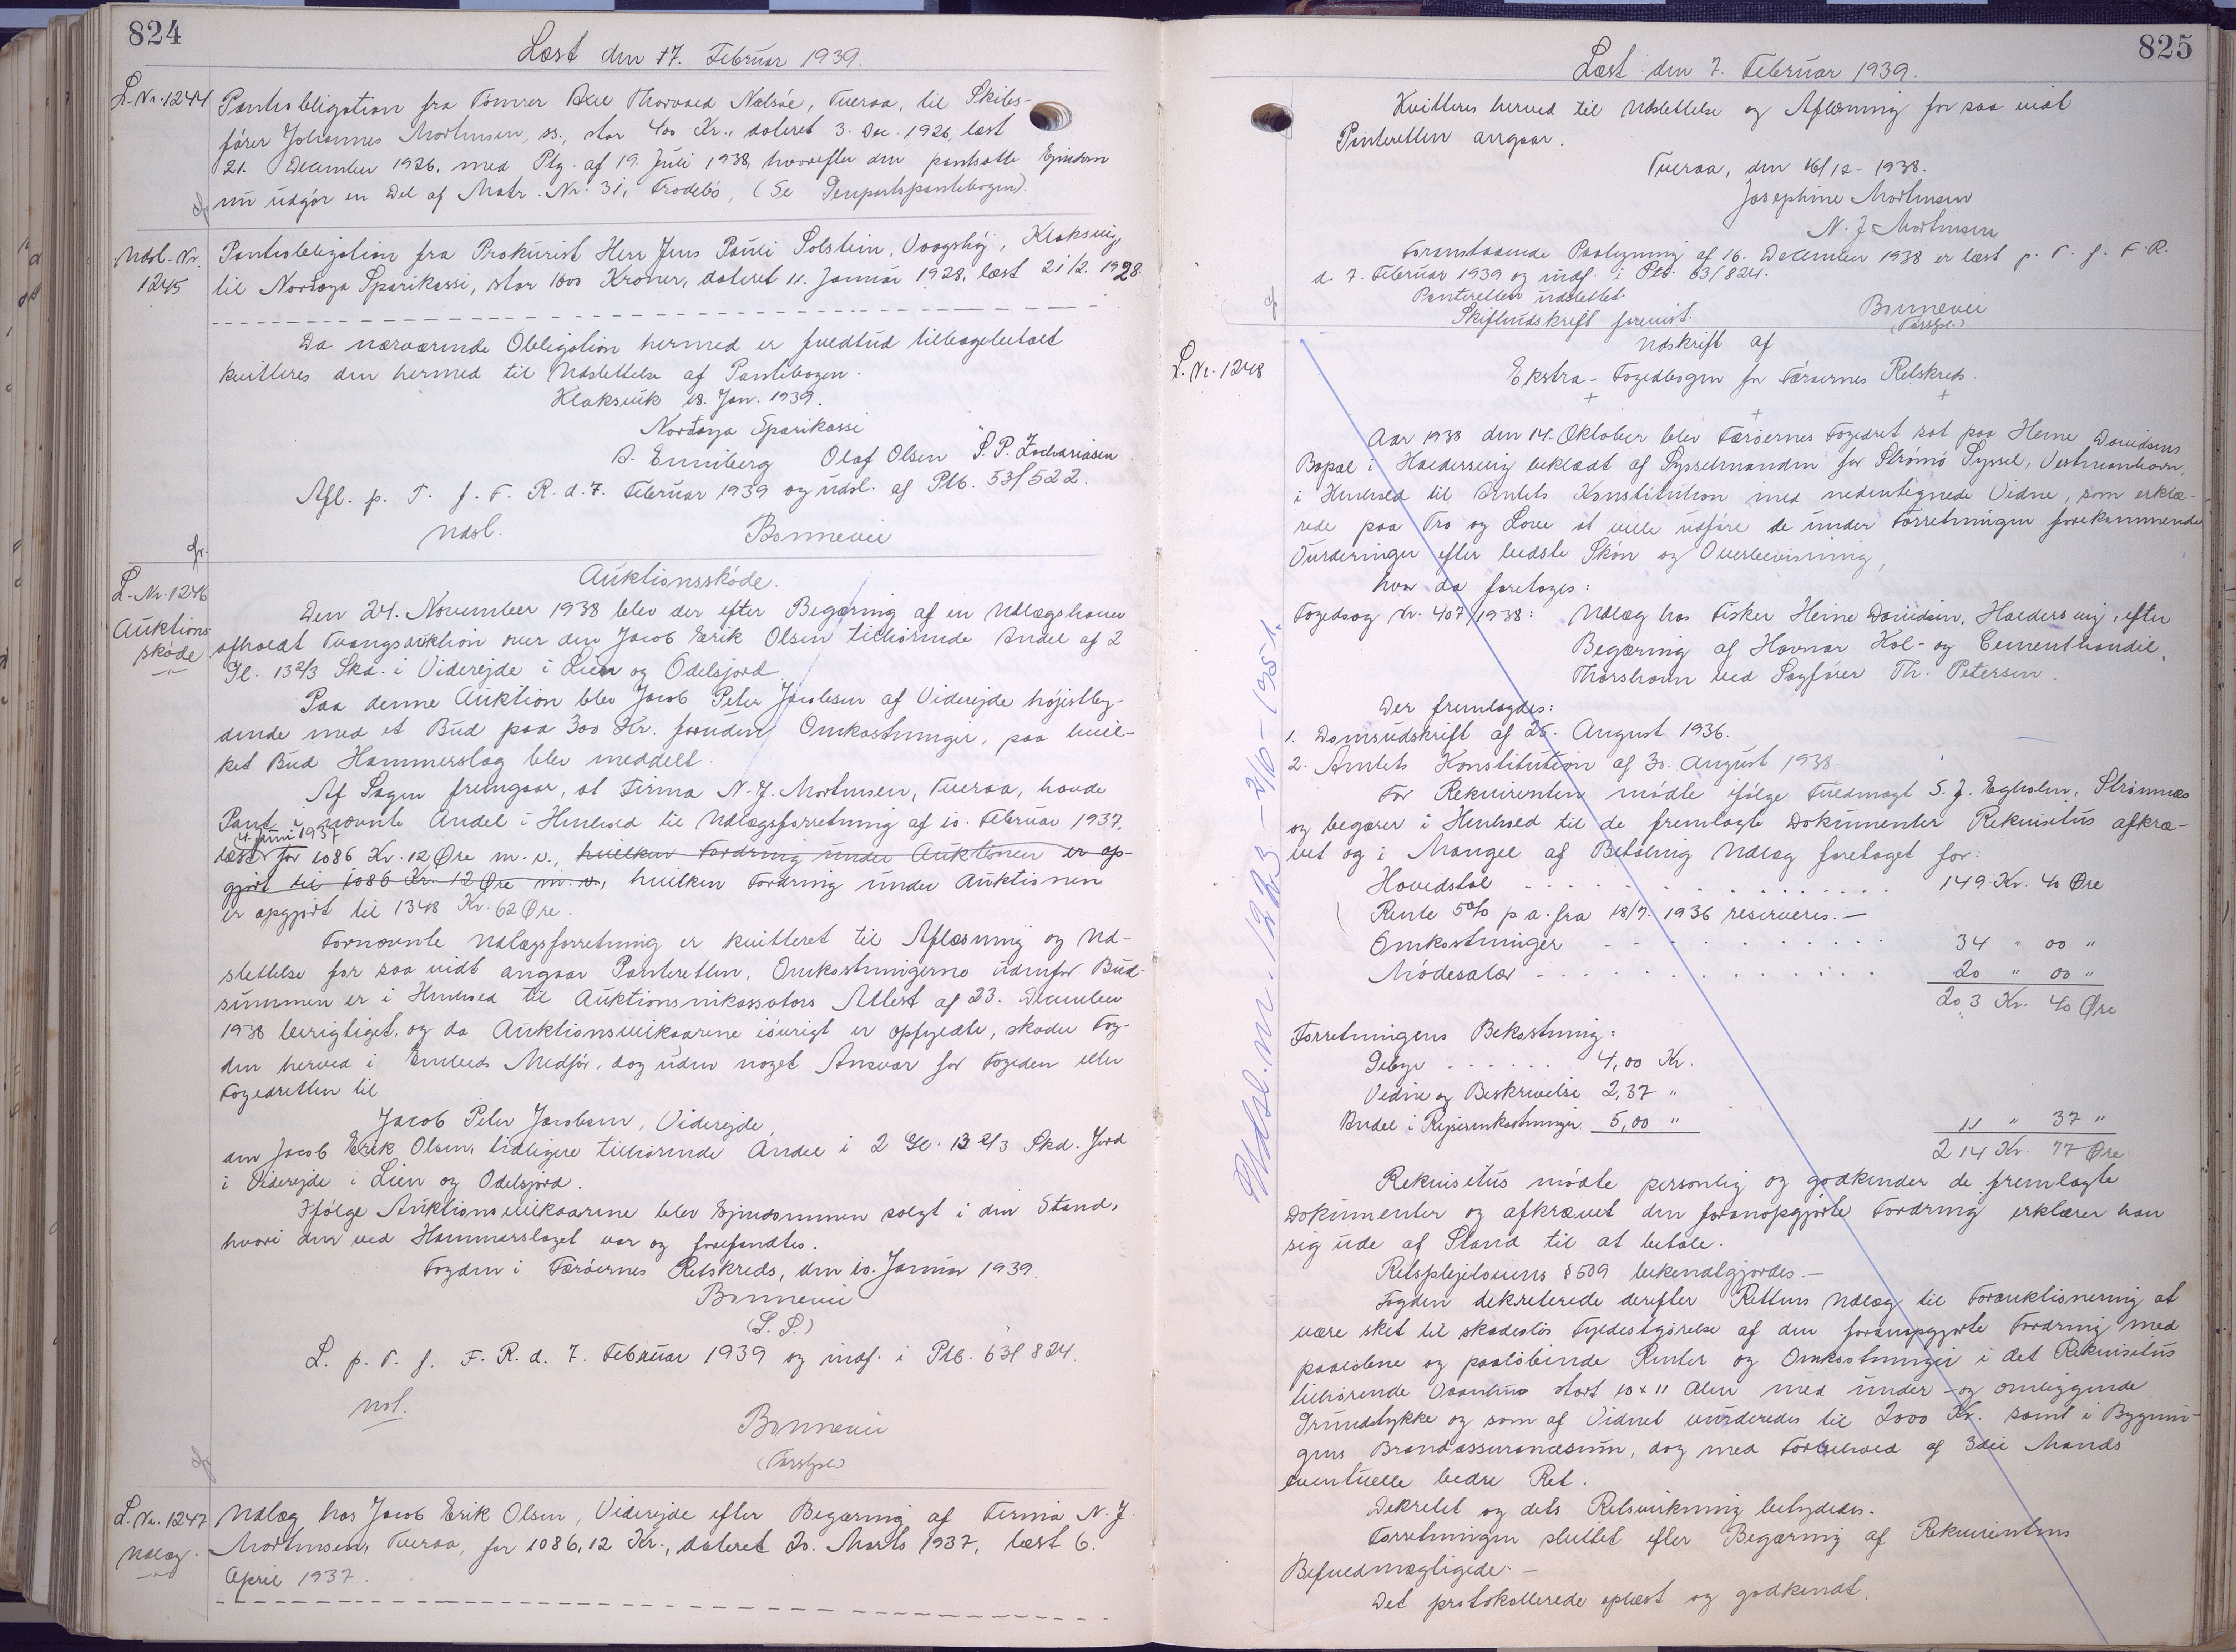 824
Læst den 17. Februar 1939.
L. Nr. 1244 Pantobligation fra Tømrer Thorvald Nælsøe, Tveraa, til Skibs-
fører Johannes Mortensen, ss., stor 400 Kr., dateret 3. Dec. 1926, læst
21. December 1926, med Ptg. af 19. Juli 1938, hvorefter den pantsatte Ejendom
nu udgør en Del af Matr. Nr. 3i, Frodebø, (Se Genpartspantebogen).
Udsl. Nr. 1245 Pantobligation fra Prokurist Herr Jens Pauli Solstein, Vaagshøj, Klaksvig,
til Norðoya Sparikassi, stor 1800 Kroner, dateret 11. Januar 1928, læst 21/2. 1928.
Da nærværende Obligation hermed er fuldtud tilbagebetalt
kvitteres den hermed til Udslettelse af Pantebogen.
Klaksvik 18. Jan. 1939.
Norðoya Sparikassi
A. Enniberg Olaf Olsen S. P. Zachariasen
Afl. p. T. f. F. R. d. 7. Februar 1939 og udsl. af Ptb. 53/522.
Udsl. Bonnevie
L. Nr. 1246
Auktions
skøde
Auktionsskøde.
Den 24. November 1938 blev der efter Begæring af en Udlægshaver
afholdt Tvangsauktion over den Jacob Erik Olsen tilhørende Andel af 2
Gl. 13 2/3 Skd. i Viderejde i Lien og Odelsjord
Paa denne Auktion blev Jacob Peter Jacobsen af Viderejde højestby-
dende med et Bud paa 300 Kr. foruden Omkostninger, paa hvil-
ket Bud Hammerslag blev meddelt.
Af Sagen fremgaar, at Firma N. J. Mortensen, Tveraa, havde
Pant i nævnte Andel i Henhold til Udlægsforretning af 10. Februar 1937,
4. Juni 1937
læst for 1086 Kr. 12 Øre m. v., hvilken Fordring under Auktionen er op-
gjort til 1086 Kr. 12 Øre m. v., hvilken Fordring under Auktionen
er opgjort til 1348 Kr. 62 Øre.
Fornævnte Udlægsforretning er kvitteret til Aflæsning og Ud-
slettelse for saa vidt angaar Panteretten, Omkostningerne udenfor Bud-
summen er i Henhold til Auktionsinkassators Attest af 23. December
1938 berigtiget, og da Auktionsvilkaarene iøvrigt er opfyldte, skøder Fog-
den herved i Embeds Medfør, dog uden noget Ansvar for Fogeden eller
Fogedretten til
Jacob Peter Jacobsen, Viderejde,
den Jacob Erik Olsen, tidligere tilhørende Andel i 2 Gl. 13 2/3 Skd. Jord
i Viderejde i Lien og Odelsjord.
Ifølge Auktionsvilkaarene blev Ejendommen solgt i den Stand,
hvori den ved Hammerslaget var og forefandtes.
Fogden i Færøernes Retskreds, den 10. Januar 1939.
Bonnevie
(L. S.)
L. p. T. f. F. R. d. 7. Februar 1939 og indf. i Ptb. 63/824.
Bonnevie
L. Nr. 1247
Udlæg.
Udlæg hos Jacob Erik Olsen, Viderejde efter Begæring af Firma N. J.
Mortensen, Tveraa, for 1086,12 Kr., dateret 20. Marts 1937, læst 6.
April 1937.
825
Læst den 7. Februar 1939.
Kvitteres herved til Udslettelse og Aflæsning for saa vidt
Panteretten angaar.
Tveraa, den 16/12- 1938.
Josephine Mortensen
N. J. Mortensen
Foranstaaende Paategning af 16. December 1938 er læst p. T. f. F. R.
d. 7. Februar 1939 og indf. i Ptb. 63/824.
Panteretten udslettet.
Skifteudskrift forevist. Bonnevie
L. Nr. 1248
Udskrift af
Ekstra-Fogedbogen for Færøernes Retskreds.
Aar 1938 den 14. Oktober blev Færøernes Fogedret sat paa Heine Davidsens
Bopæl i Haldersvig beklædt af Sysselmanden for Strømø Syssel, Vestmanhavn,
i Henhold til Amtets Konstitution med nedentegnede Vidne, som erklæ-
rede paa Tro og Love at ville udføre de under Forretningen forekommende
Vurderinger efter bedste Skøn og Overbevisning,
hvor da foretages:
Fogedsag Nr. 407/1938: Udlæg hos Fisker Heine Davidsen, Haldersvig, efter
Begæring af Havnar Kol- og Cementhandil,
Thorshavn ved Sagfører Th. Petersen.
Der fremlagdes:
1. Domsudskrift af 25. August 1936.
2. Amtets Konstitution af 30. August 1938.
For Rekvirenten mødte ifølge Fuldmagt S. J. Egholm, Strømnæs
og begærer i Henhold til de fremlagte Dokumenter Rekvisitus afkræ-
vet og i Mangel af Betaling Udlæg foretaget for:
Hovedstol 149 Kr. 40 Øre
Rente 5% p a. fra 18/7. 1936 reserveres.—
Omkostninger 34 " 00 "
Mødesalær 20 " 00 "
203 Kr. 40 Øre
Forretningens Bekostning:
Gebyr 4,00 Kr.
Vidne og Beskrivelse 2,37 "
Andel i Rejseomkostninger 5,00 " 11 " 37 "
214 Kr. 77 Øre
Rekvisitus mødte personlig og godkender de fremlagte
Dokumenter og afkrævet den foranopgjorte Fordring erklærer han
sig ude af Stand til at betale.
Retsplejelovens § 509 bekendtgjordes.—
Fogden dekreterede derefter Rettens Udlæg til Forauktionering at
være sket til skadesløs Fyldestgørelse af den foranopgjorte Fordring med
paaløbne og paaløbende Renter og Omkostninger i det Rekvisitus
tilhørende Vaanhus stort 10 x 11 Alen med under- og omliggende
Grundstykke og som af Vidnet vurderedes til 2000 Kr. samt i Bygnin-
gens Brandassurancesum, dog med Forbehold af 3die Mands
eventuelle bedre Ret.
Dekretet og dets Retsvirkning betydedes.
Forretningen sluttet efter Begæring af Rekvirentens
Befuldmægtigede.—
Det protokollerede oplæst og godkendt.